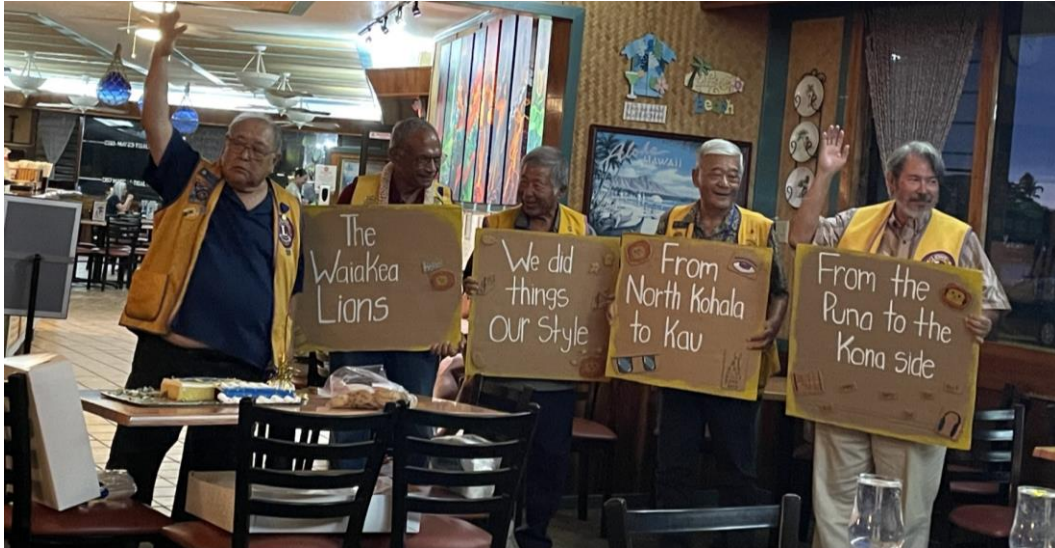 The
Waiakea
Lions
We did
things
our style
From
North Kohala
to Kau
From the
Puna to the
Kona side
Aloha
HAWAII
Beach